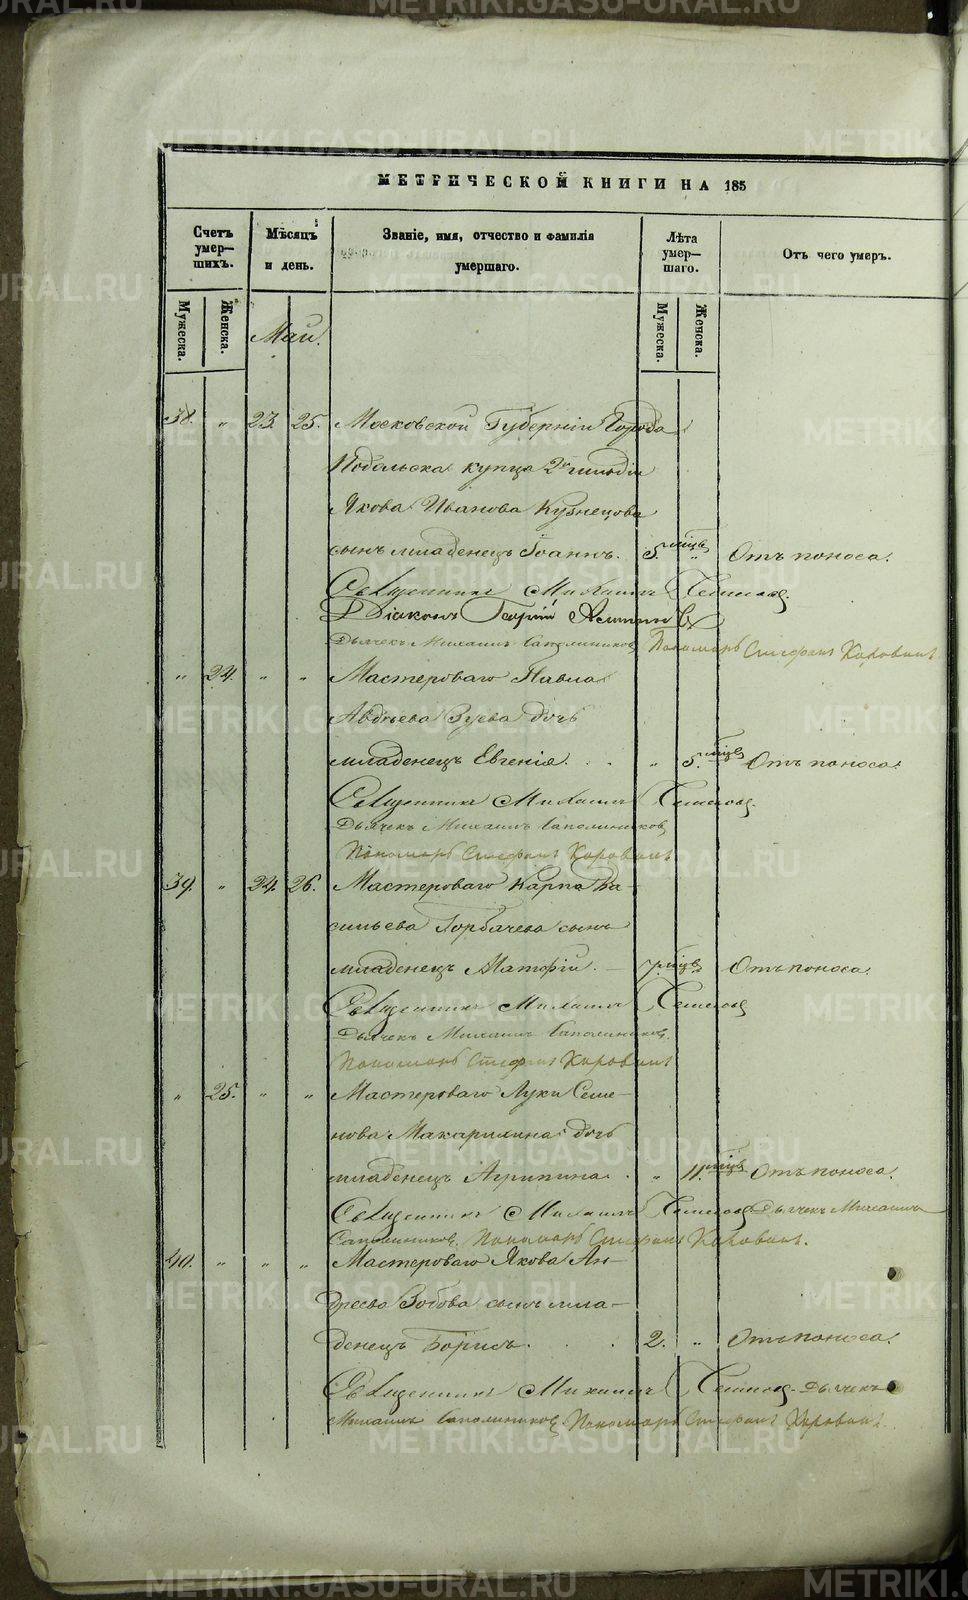 METRIKI.GASO-URAL.RU
МЕТРИЧЕСКОЙ КНИГИ НА 185
Счетъ умер—шихъ.
Мужеска.
Женска.
Мѣсяцъ и день.
Званіе, имя, отчество и фамилія умершаго.
Лѣта умер—шаго.
Мужеска.
Женска.
Отъ чего умеръ.
Май.
38. „ 23. 25. Московской Губерніи Города
Подольска купца 2й гильдіи
Якова Иванова Кузнецова
сынъ младенецъ Іоаннъ. 5. мѣцъ „ Отъ поноса.
Священникъ Михаилъ
Діаконъ Георгій
Дьячекъ Михаилъ Сапожниковъ Пономарь Стефанъ Хорованъ
„ 24. „ „ Мастероваго Павла
Авдѣева Зуева дочь
младенецъ Евгенія. „ 5. мѣцъ Отъ поноса.
Священникъ Михаилъ
Дьячекъ Михаилъ Сапожниковъ
Пономарь Стефанъ Хорованъ
39. „ 24. 26. Мастероваго Карпа Ва—
сильева Горбачева сынъ
младенецъ — 7. мѣцъ „ Отъ поноса.
Священникъ Михаилъ
Дьячекъ Михаилъ Сапожниковъ.
Пономарь Стефанъ Хорованъ
„ 25. „ „ Мастероваго Луки Семе—
нова дочь
младенецъ Агрипина. „ 11. мѣцъ Отъ поноса.
Священникъ Михаилъ Дьячекъ Михаилъ
Сапожниковъ. Пономарь Стефанъ Хорованъ.
40. „ „ „ Мастероваго Якова Ан—
дреева Зобова сынъ мла—
денецъ Борисъ. 2. „ Отъ поноса.
Священникъ Михаилъ Дьячекъ
Михаилъ Сапожниковъ Пономарь Стефанъ Хорованъ.